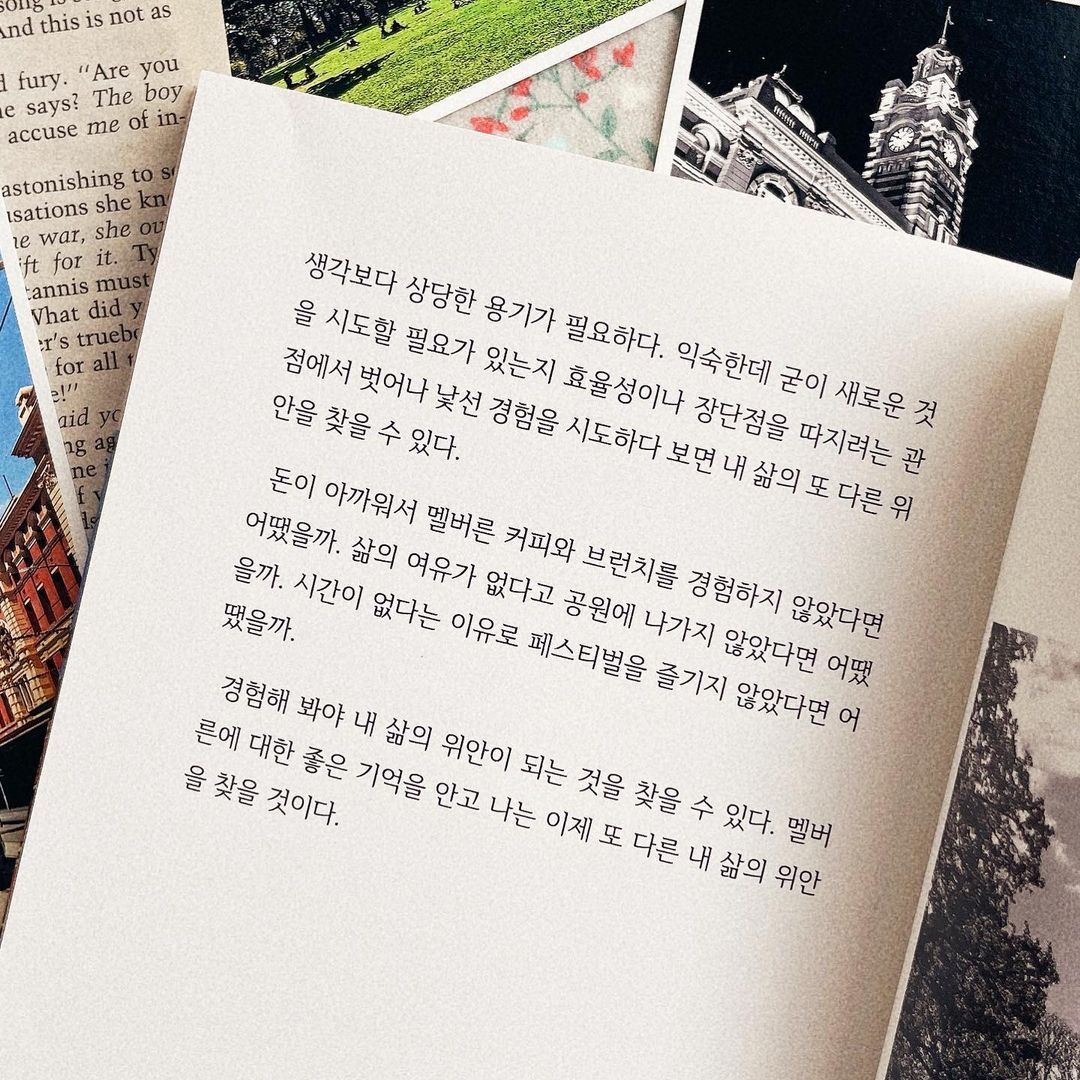 song is
And this is not as
d fury. "Are you
he says? The boy
accuse me of in-
astonishing to
usations she
the war, she
ift for it.
annis must
What did
er's
for all
e!"
said
ng
생각보다 상당한 용기가 필요하다. 익숙한데 굳이 새로운 것
을 시도할 필요가 있는지 효율성이나 장단점을 따지려는 관
점에서 벗어나 낯선 경험을 시도하다 보면 내 삶의 또 다른 위
안을 찾을 수 있다.
돈이 아까워서 멜버른 커피와 브런치를 경험하지 않았다면
어땠을까. 삶의 여유가 없다고 공원에 나가지 않았다면 어땠
을까. 시간이 없다는 이유로 페스티벌을 즐기지 않았다면 어
땠을까.
경험해 봐야 내 삶의 위안이 되는 것을 찾을 수 있다. 멜버
른에 대한 좋은 기억을 안고 나는 이제 또 다른 내 삶의 위안
을 찾을 것이다.